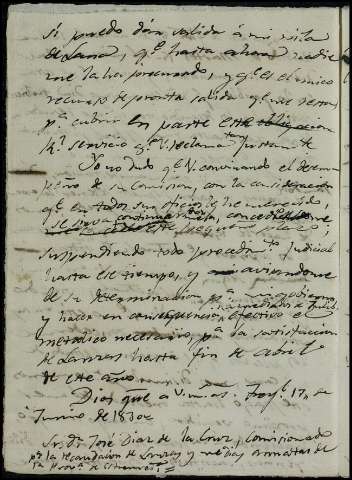 si puedo dar salida á mi pila
de Lana, q.e hasta ahora nadie
me la ha procurado, y q.e es el unico
recurso de pronta salida q.e me resta
p.a cubrir en parte este obligacion
servicio q.e V. reclama justam.te
Yo no dudo q.e V. convinando el desem
peño de su comision, con la consideracion
q.e en todos sus oficios
se sirva concederme
este pequeño plazo,
suspendiendo todo procedim.to judicial
hasta ese tiempo, y aviendome
de su determinacion p.a
y hacer en consequencia efectivo el
metalico necesario, p.a la satisfaccion
de Lanzas hasta fin de abril
de este año.
Dios gue a V. m.s a.s 17 de
Junio de 1830
Sr. D.n José Diaz de la Cruz, comisionado
p.a la recaudacion de Lanzas y medias annatas de
la Prov.a de Estremad.a